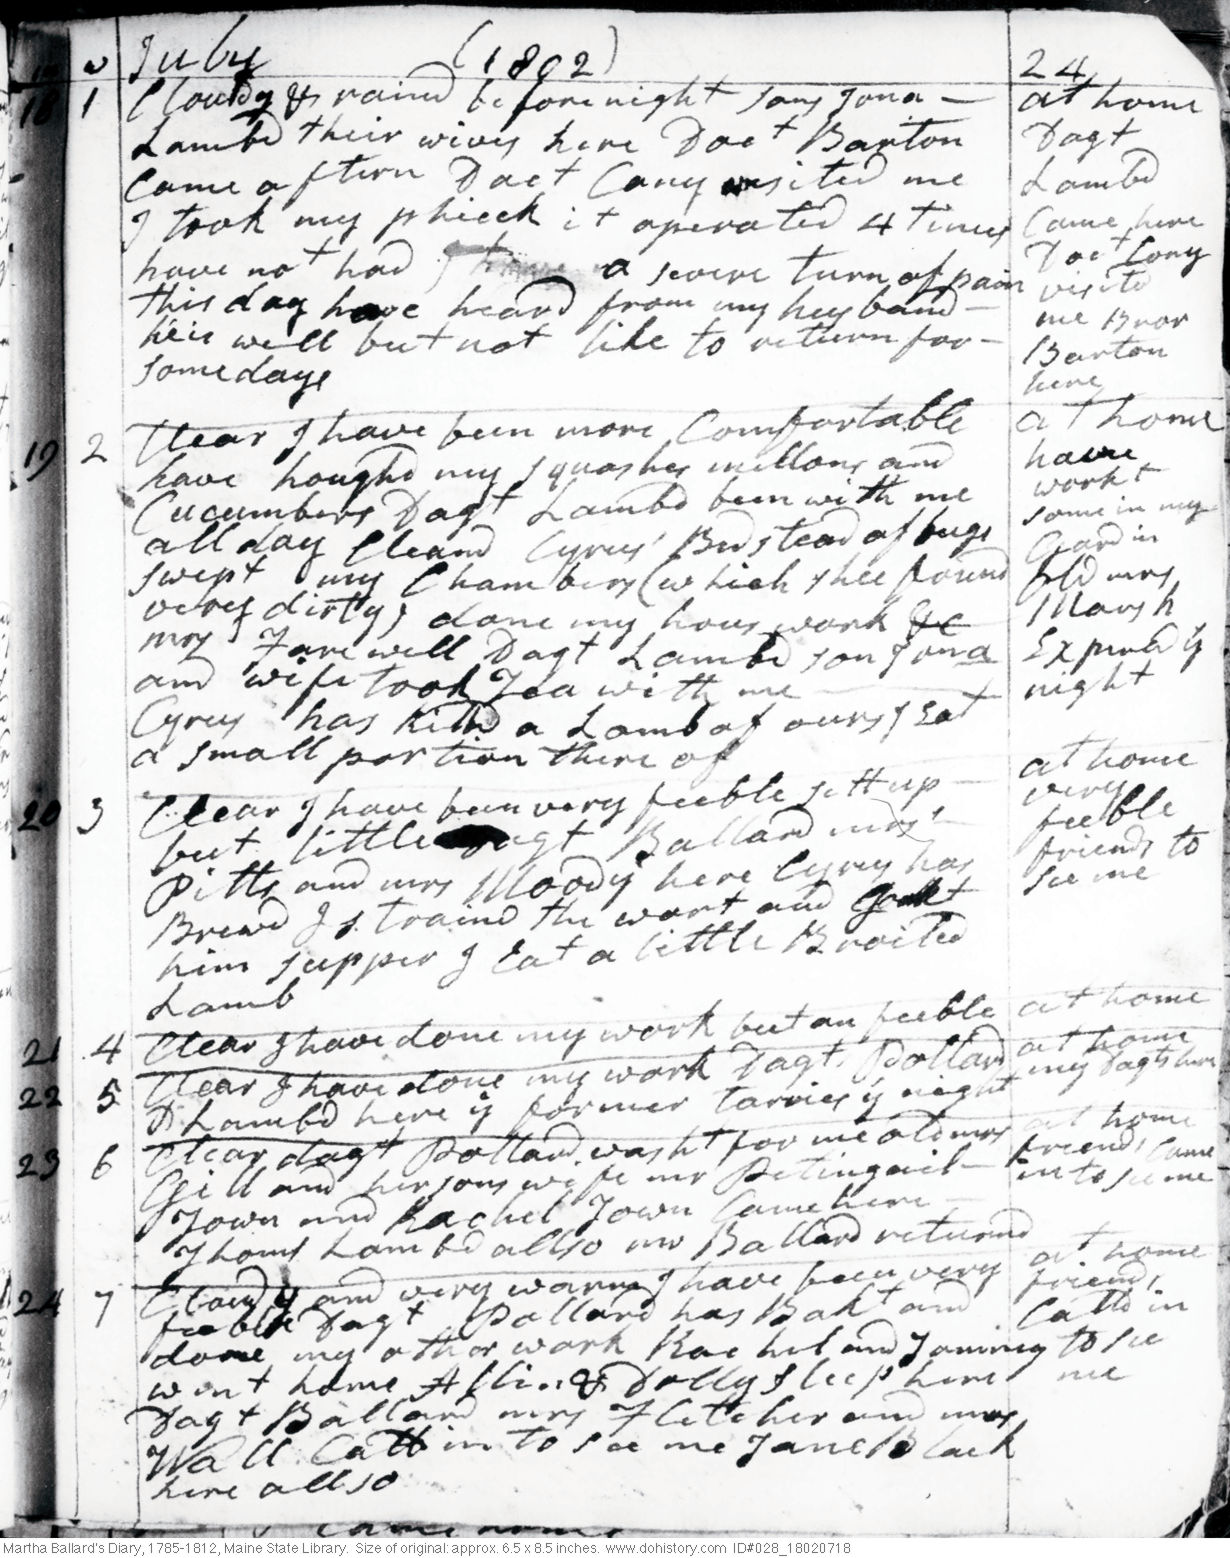 July (1802) 24
18 1 Cloudy & raind before night sons Jona
Lambd their wives here Doct Barton
Came aftern Doct Cony visited me
I took my phisck it operated 4 times
have not had a severe turn of pain
this day have heard from my husband
he is well but not like to return for
some days
at home
Dagt
Lambd
Came here
Doct Cony
visitd
me Bror
Barton
here
19 2 Clear I have been more Comfortable
have houghd my squashes mellons and
Cucumbers Dagt Lambd been with me
all day Cleand Cyrus' Bedstead of bugs
swept my Chambers (which shee found
verey dirty) done my hous work &c
mrs Farewell Dagt Lambd son Jona
and wife took Tea with me
Cyrus has killd a Lamb of ours I Eat
a small portion there of
at home
have
workt
some in my
Gardin
old mrs
Marsh
Expired ys
night
20 3 Clear I have been very feeble sett up
but little Dagt Ballard mrs
Pitts and mrs Moody here Cyrus has
Brewd I straind the wort and got
him supper I Eat a little Broiled
Lamb
at home
very
feeble
friends to
see me
21 4 Clear I have done my work but am feeble
at home
22 5 Clear I have done my work Dagt Pollard
& Lambd here ye former tarries ys night
at home
my Dagts here
23 6 Clear dagt Pollard washt for me old mrs
Gill and her sons wife mr Petingail
Town and Rachel Town Came here
Thoms Lambd allso mr Ballard returnd
at home
friends Came
in to see me
24 7 Cloudy and very warm I have been very
feeble Dagt Pollard has Bakt and
done my other work Rachel and Jamimy
went home & Dolly sleep here
Dagt Ballard mrs Fletcher and mrs
Wall Calld in to see me Jane Black
here allso
at home
friends
Calld in
to see
me
Came home
Martha Ballard's Diary, 1785-1812, Maine State Library. Size of original: approx. 6.5 x 8.5 inches. www.dohistory.com ID#028_18020718